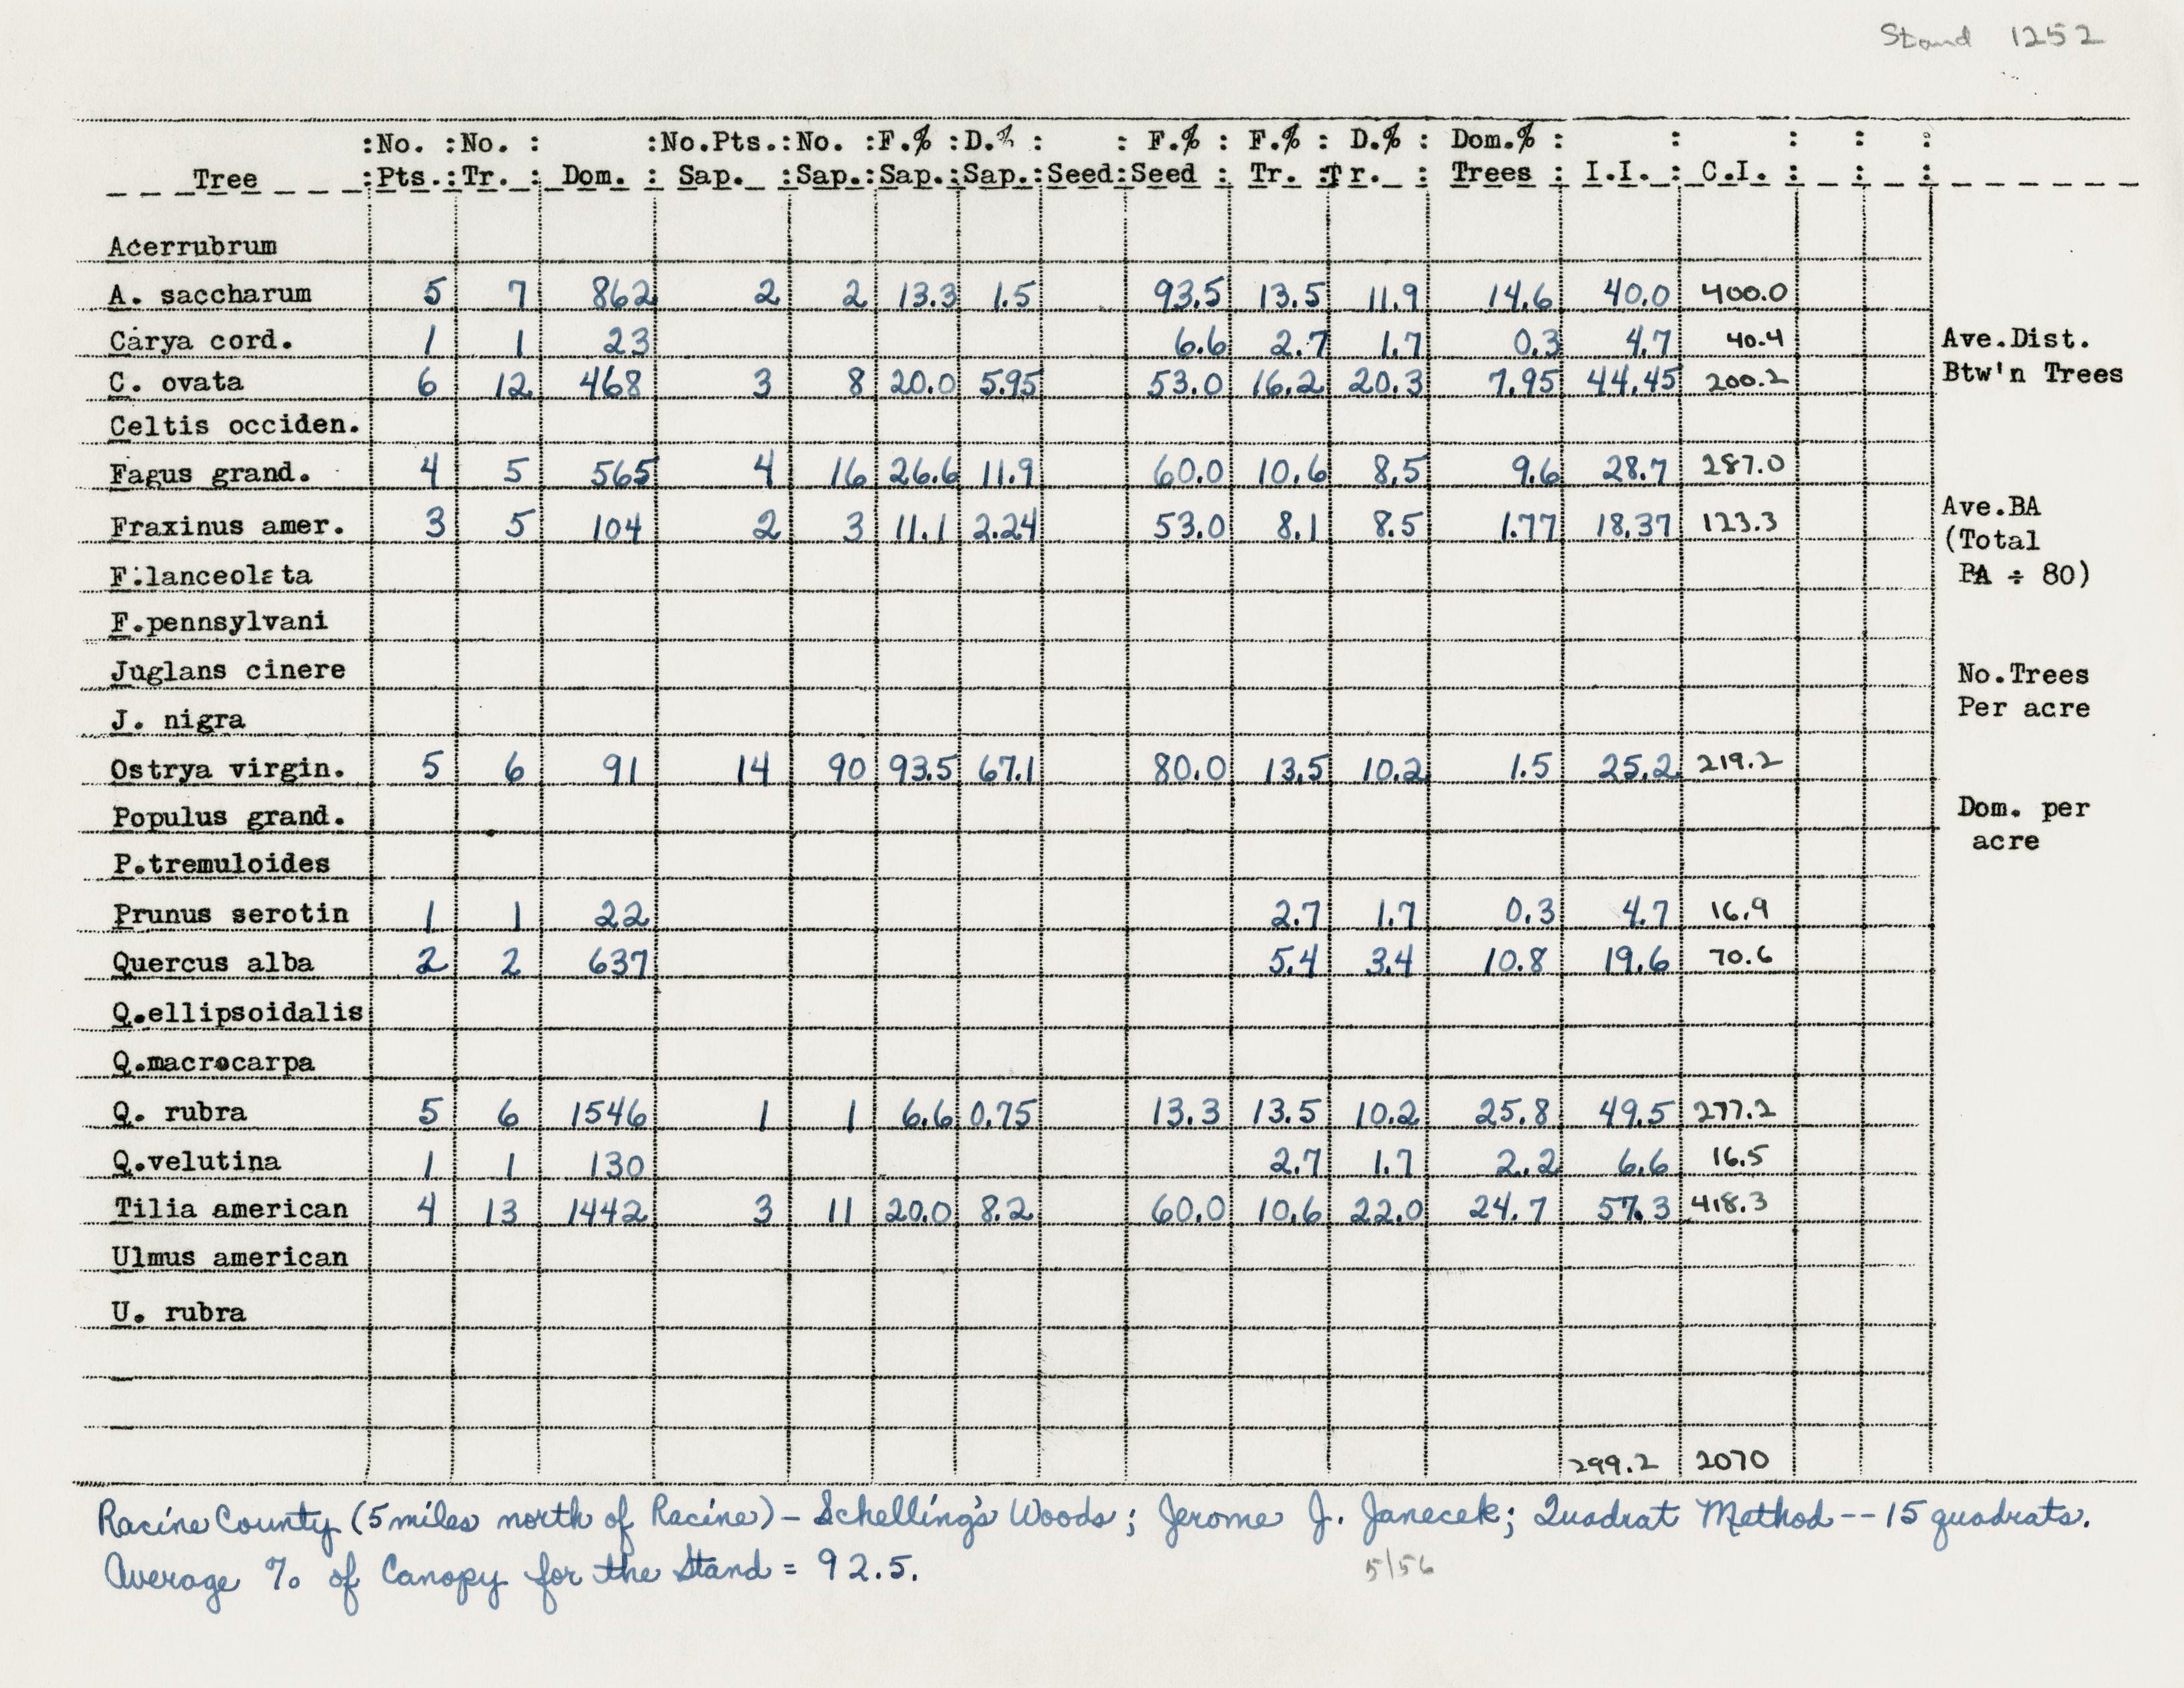 Stand 1252
:No. :No. : :No.Pts.:No. :F.% :D.% : : F.% : F.% : D.% : Dom.% : : : : :
Tree :Pts.:Tr. : Dom. : Sap. :Sap.:Sap.:Sap.:Seed:Seed : Tr. :Tr. : Trees : I.I. : C.I. : : :
Acerrubrum
A. saccharum 5 7 862 2 2 13.3 1.5 93.5 13.5 11.9 14.6 40.0 400.0
Carya cord. 1 1 23 6.6 2.7 1.7 0.3 4.7 40.4
Ave.Dist.
Btw'n Trees
C. ovata 6 12 468 3 8 20.0 5.95 53.0 16.2 20.3 7.95 44.45 200.2
Celtis occiden.
Fagus grand. 4 5 565 4 16 26.6 11.9 60.0 10.6 8.5 9.6 28.7 287.0
Fraxinus amer. 3 5 104 2 3 11.1 2.24 53.0 8.1 8.5 1.77 18.37 123.3
Ave.BA
(Total
BA ÷ 80)
F.lanceolata
F.pennsylvani
Juglans cinere
No.Trees
Per acre
J. nigra
Ostrya virgin. 5 6 91 14 90 93.5 67.1 80.0 13.5 10.2 1.5 25.2 219.2
Populus grand.
Dom. per
acre
P.tremuloides
Prunus serotin 1 1 22 2.7 1.7 0.3 4.7 16.9
Quercus alba 2 2 637 5.4 3.4 10.8 19.6 70.6
Q.ellipsoidalis
Q.macrocarpa
Q. rubra 5 6 1546 1 1 6.6 0.75 13.3 13.5 10.2 25.8 49.5 277.2
Q.velutina 1 1 130 2.7 1.7 2.2 6.6 16.5
Tilia american 4 13 1442 3 11 20.0 8.2 60.0 10.6 22.0 24.7 57.3 418.3
Ulmus american
U. rubra
299.2 2070
Racine County (5 miles north of Racine) – Schelling's Woods; Jerome J. Janecek; Quadrat Method -- 15 quadrats.
Average % of Canopy for the Stand = 92.5.
5/56